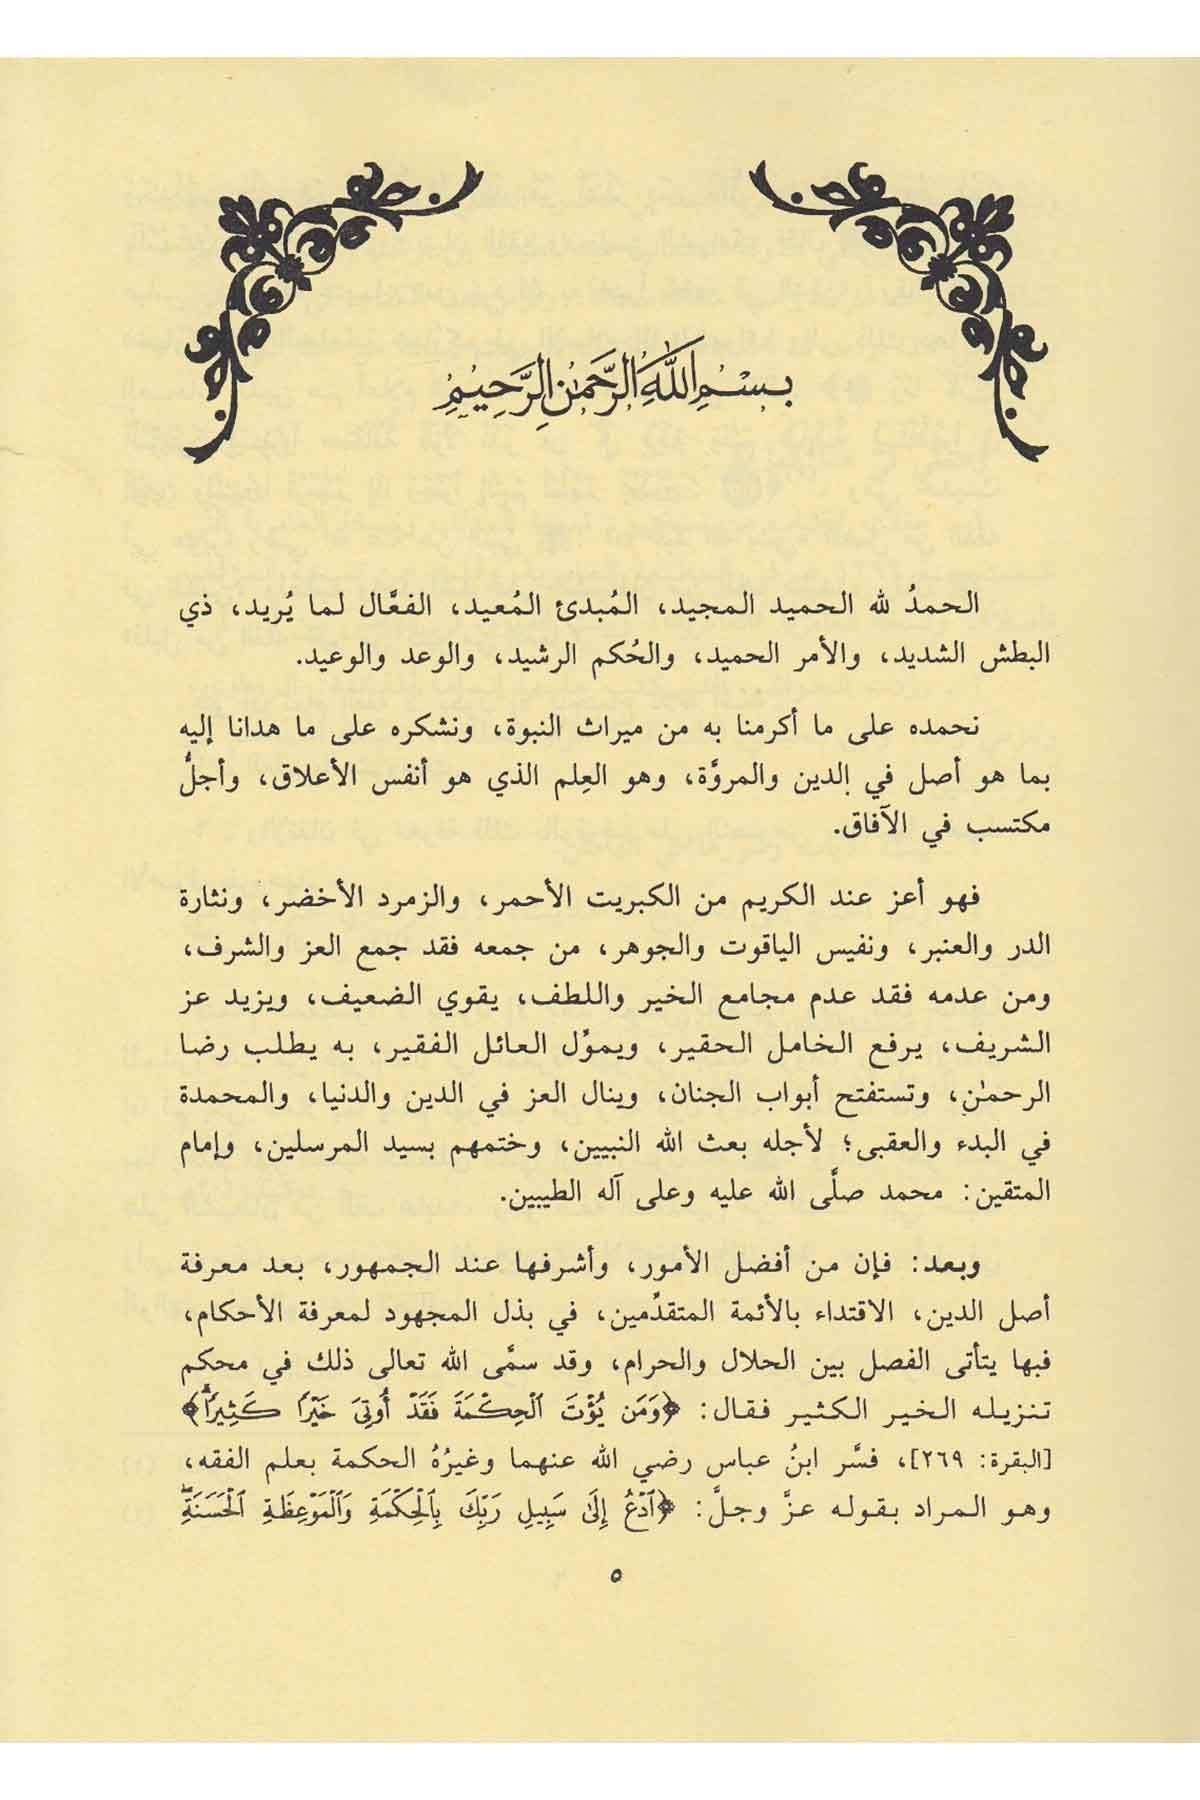 بسم الله الرحمن الرحيم
الحمدُ لله الحميد المجيد، المُبدئ المُعيد، الفعَّال لما يُريد، ذي
البطش الشديد، والأمر الحميد، والحُكم الرشيد، والوعد والوعيد.
نحمده على ما أكرمنا به من ميراث النبوة، ونشكره على ما هدانا إليه
بما هو أصل في الدين والمروَّة، وهو العِلم الذي هو أنفس الأعلاق، وأجلُّ
مكتسب في الآفاق.
فهو أعز عند الكريم من الكبريت الأحمر، والزمرد الأخضر، ونثارة
الدر والعنبر، ونفيس الياقوت والجوهر، من جمعه فقد جمع العز والشرف،
ومن عدمه فقد عدم مجامع الخير واللطف، يقوي الضعيف، ويزيد عز
الشريف، يرفع الخامل الحقير، ويموِّل العائل الفقير، به يطلب رضا
الرحمٰن، وتستفتح أبواب الجنان، وينال العز في الدين والدنيا، والمحمدة
في البدء والعقبى؛ لأجله بعث الله النبيين، وختمهم بسيد المرسلين، وإمام
المتقين: محمد صلَّى الله عليه وعلى آله الطيبين.
وبعد: فإن من أفضل الأمور، وأشرفها عند الجمهور، بعد معرفة
أصل الدين، الاقتداء بالأئمة المتقدِّمين، في بذل المجهود لمعرفة الأحكام،
فبها يتأتى الفصل بين الحلال والحرام، وقد سمَّى الله تعالى ذلك في محكم
تنزيله الخير الكثير فقال: ﴿وَمَن يُؤْتَ ٱلْحِكْمَةَ فَقَدْ أُوتِىَ خَيْرًا كَثِيرًا ۗ﴾
[البقرة: ٢٦٩]، فسَّر ابنُ عباس رضي الله عنهما وغيرُهُ الحكمة بعلم الفقه،
وهو المراد بقوله عزَّ وجلَّ: ﴿ٱدْعُ إِلَىٰ سَبِيلِ رَبِّكَ بِٱلْحِكْمَةِ وَٱلْمَوْعِظَةِ ٱلْحَسَنَةِ ۖ
٥